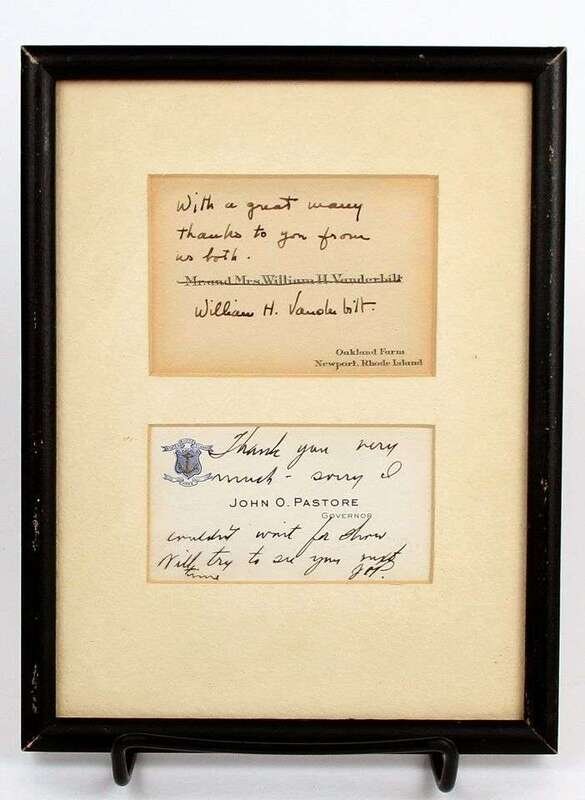 With a great many
thanks to you from
us both.
Mr. and Mrs. William H. Vanderbilt
William H. Vanderbilt.
Oakland Farm
Newport, Rhode Island
Thank you very
much - sorry I
JOHN O. PASTORE
GOVERNOR
couldn't wait for show
Will try to see you next
time
JOP.